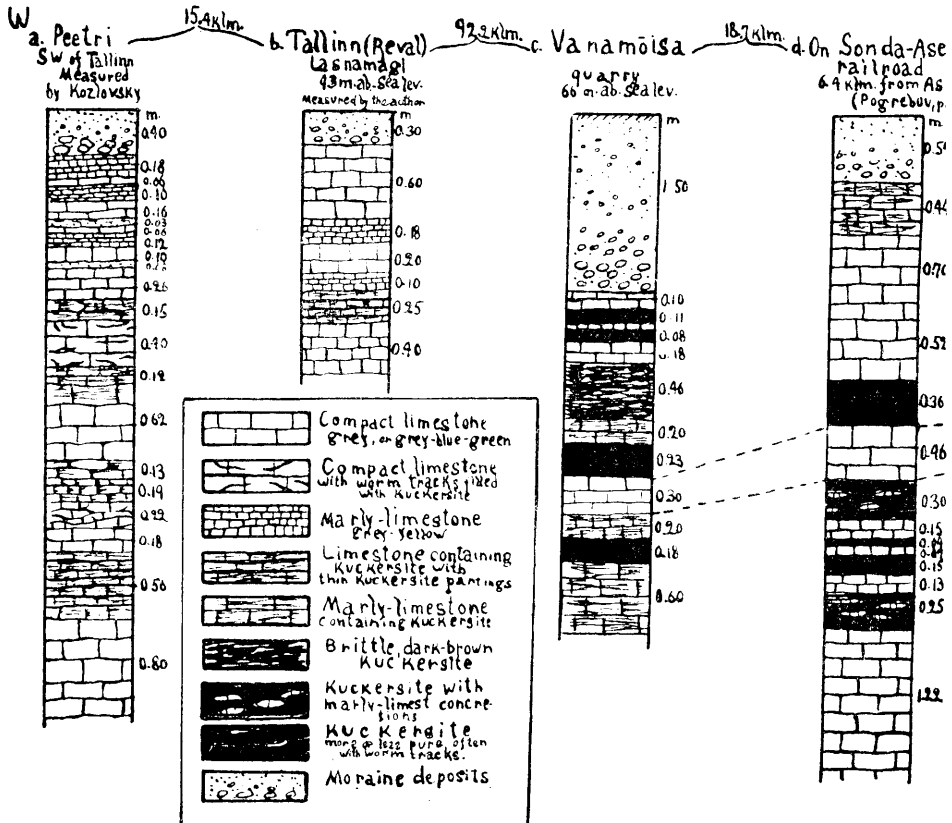 W
15.4 klm.
92.2 klm.
18.7 klm.
a. Peetri
SW of Tallinn
Measured
by Kozlovsky
b. Tallinn (Reval)
Lasnamägi
43 m. ab. sea lev.
Measured by the author
c. Vanamõisa
quarry
66 m. ab. sea lev.
d. On Sonda-Ase
railroad
6.4 klm. from As
(Pogrebov, p.
m.
0.18
0.10
0.16
0.03
0.06
0.12
0.10
0.26
0.15
0.12
0.62
0.13
0.19
0.22
0.18
0.56
0.80
m
0.30
0.60
0.18
0.20
0.10
0.25
0.40
m
1.50
0.10
0.11
0.08
0.18
0.46
0.20
0.23
0.30
0.20
0.18
0.60
m
0.54
0.44
0.70
0.52
0.36
0.46
0.30
0.15
0.15
0.13
0.25
1.22
Compact limestone
grey, or grey-blue-green
Compact limestone
with worm tracks filled
with Kuckersite
Marly-limestone
grey-yellow
Limestone containing
Kuckersite with
thin Kuckersite partings
Marly-limestone
containing Kuckersite
Brittle, dark-brown
Kuckersite
Kuckersite with
marly-limest concre-
sions
Kuckersite
more or less pure, often
with worm tracks.
Moraine deposits